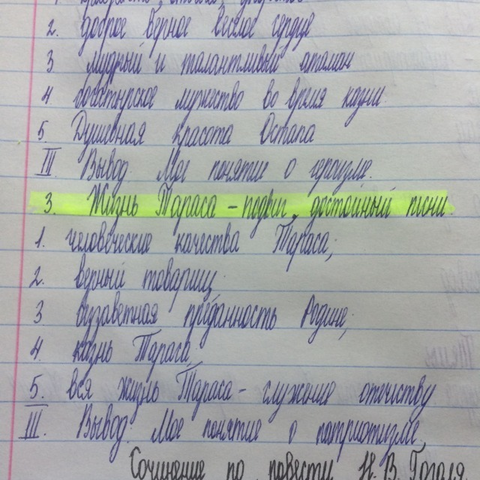 2. Доброе верное чесное сердце
3 мудрый и талантливый атаман
4 богатырское мужество во время казни
5. Душевная красота Остапа
III Вывод. Мое понятие о героизме.
3. Жизнь Тараса - подвиг, достойный песни
1. человеческие качества Тараса;
2. верный товарищ
3 беззаветная преданность Родине;
4 казнь Тараса
5. вся жизнь Тараса - служение отечеству
III. Вывод. Мое понятие о патриотизме,
Сочинение по повести Н. В. Гоголя